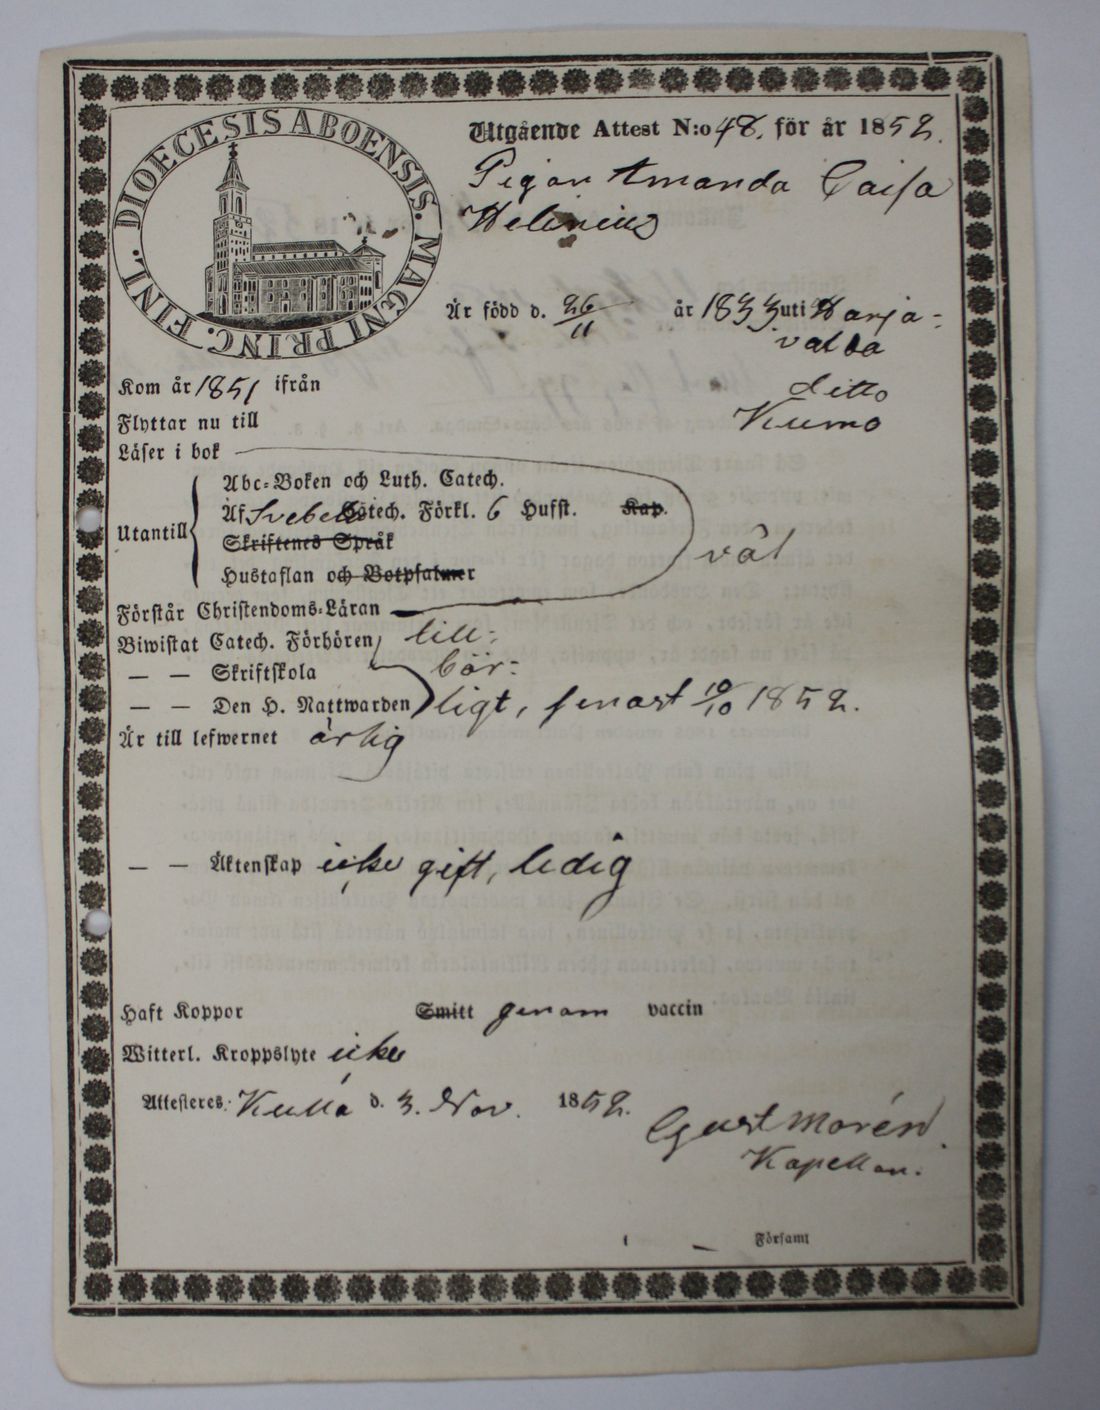 DIOECESIS ABOENSIS. MAGNI PRINC. FINL.
Utgående Attest N:o 48. för år 1852.
Pigan Amanda Caisa
Helenius
Är född d. 26/11 år 1833 uti Harja-
valda
Kom år 1851 ifrån ditto
Flyttar nu till Kumo
Läser i bok
Utantill
Abc-Boken och Luth. Catech.
Af Svebelii Catech. Förkl. 6 Hufst. Kap.
Skriftenes Språk
väl
Hustaflan och Botpsalmer
Förstår Christendoms-Läran
Biwistat Catech. Förhören till-
— — Skriftskola bör-
— — Den H. Nattwarden ligt, senast 10/10 1852.
Är till lefwernet ärlig
— — Äktenskap icke gift, ledig
Haft Koppor Smitt genom vaccin
Witterl. Kroppslyte icke
Attesteras: Kulla d. 3. Nov. 1852.
Gust Morén
Kapellan.
Församl